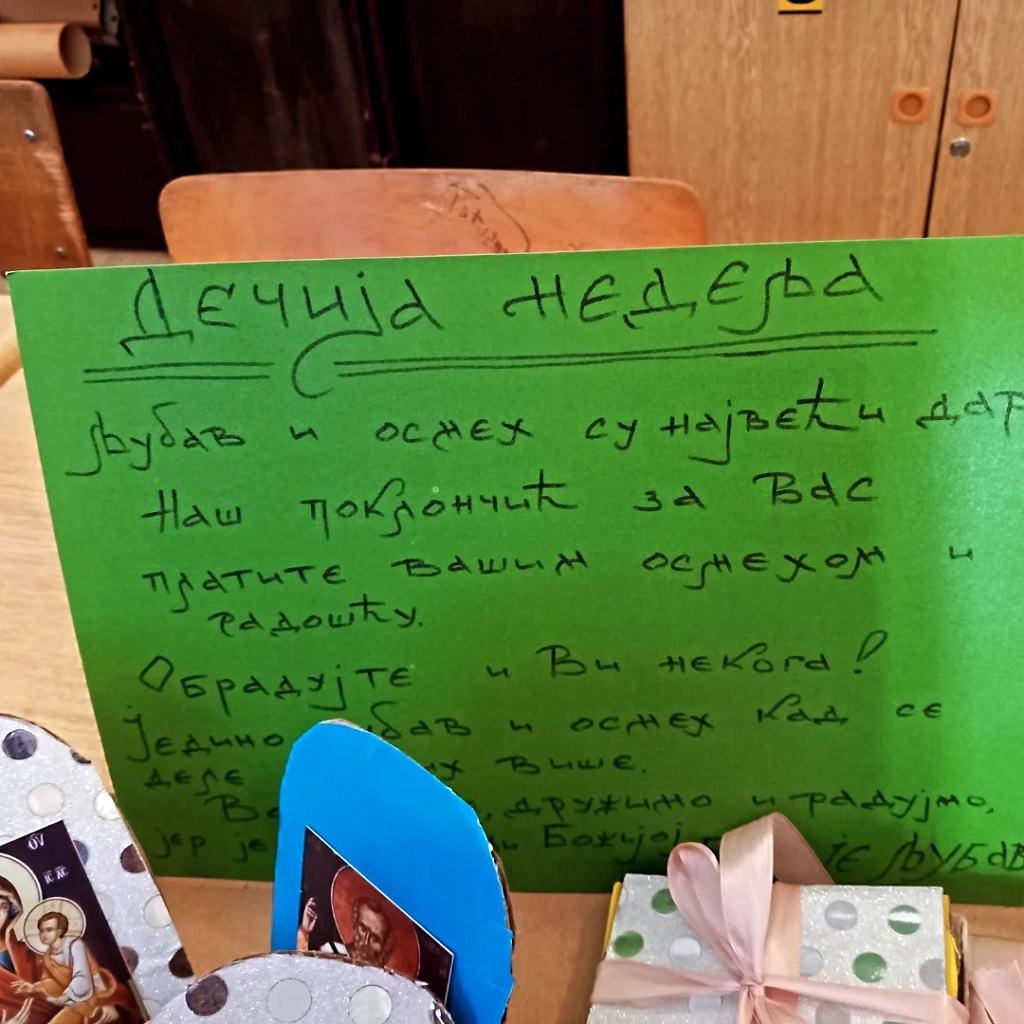 Дечија недеља
Љубав и осмех су највећи дар
Наш поклончић за Вас
платите вашим осмехом и
радошћу.
Обрадујте и Ви некога!
Једино и осмех кад се
деле их више.
дружимо и радујмо,
јер је Божијој је љубав